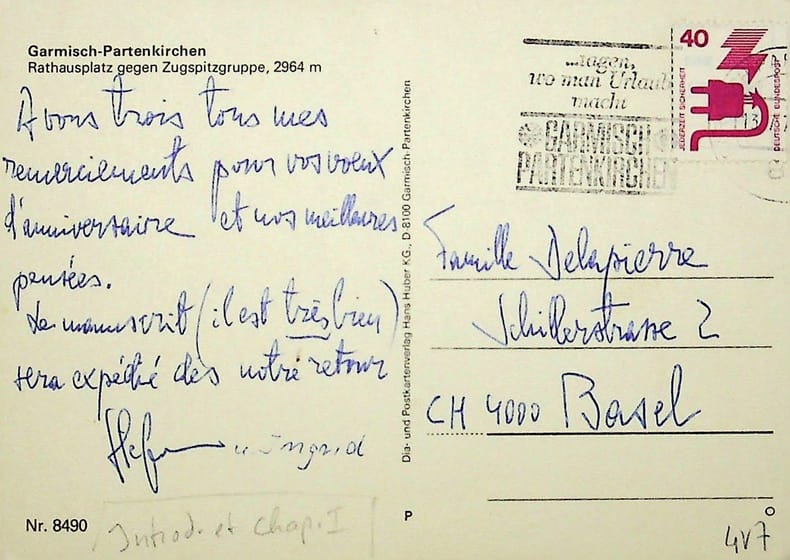 Garmisch-Partenkirchen
Rathausplatz gegen Zugspitzgruppe, 2964 m
A vous trois tous mes
remerciements pour vos voeux
d'anniversaire et nos meilleures
pensées.
Le manuscrit (il est très bien)
sera expédié dès notre retour
u. Ingrid
Nr. 8490
Introd. et Chap. I
Dia- und Postkartenverlag Hans Huber KG., D-8100 Garmisch-Partenkirchen
P
wo man Urlaub
macht
GARMISCH
PARTENKIRCHEN
40
JEDERZEIT SICHERHEIT
DEUTSCHE BUNDESPOST
Famille Delapierre
Schillerstrasse 2
CH 4000 Basel
4V7